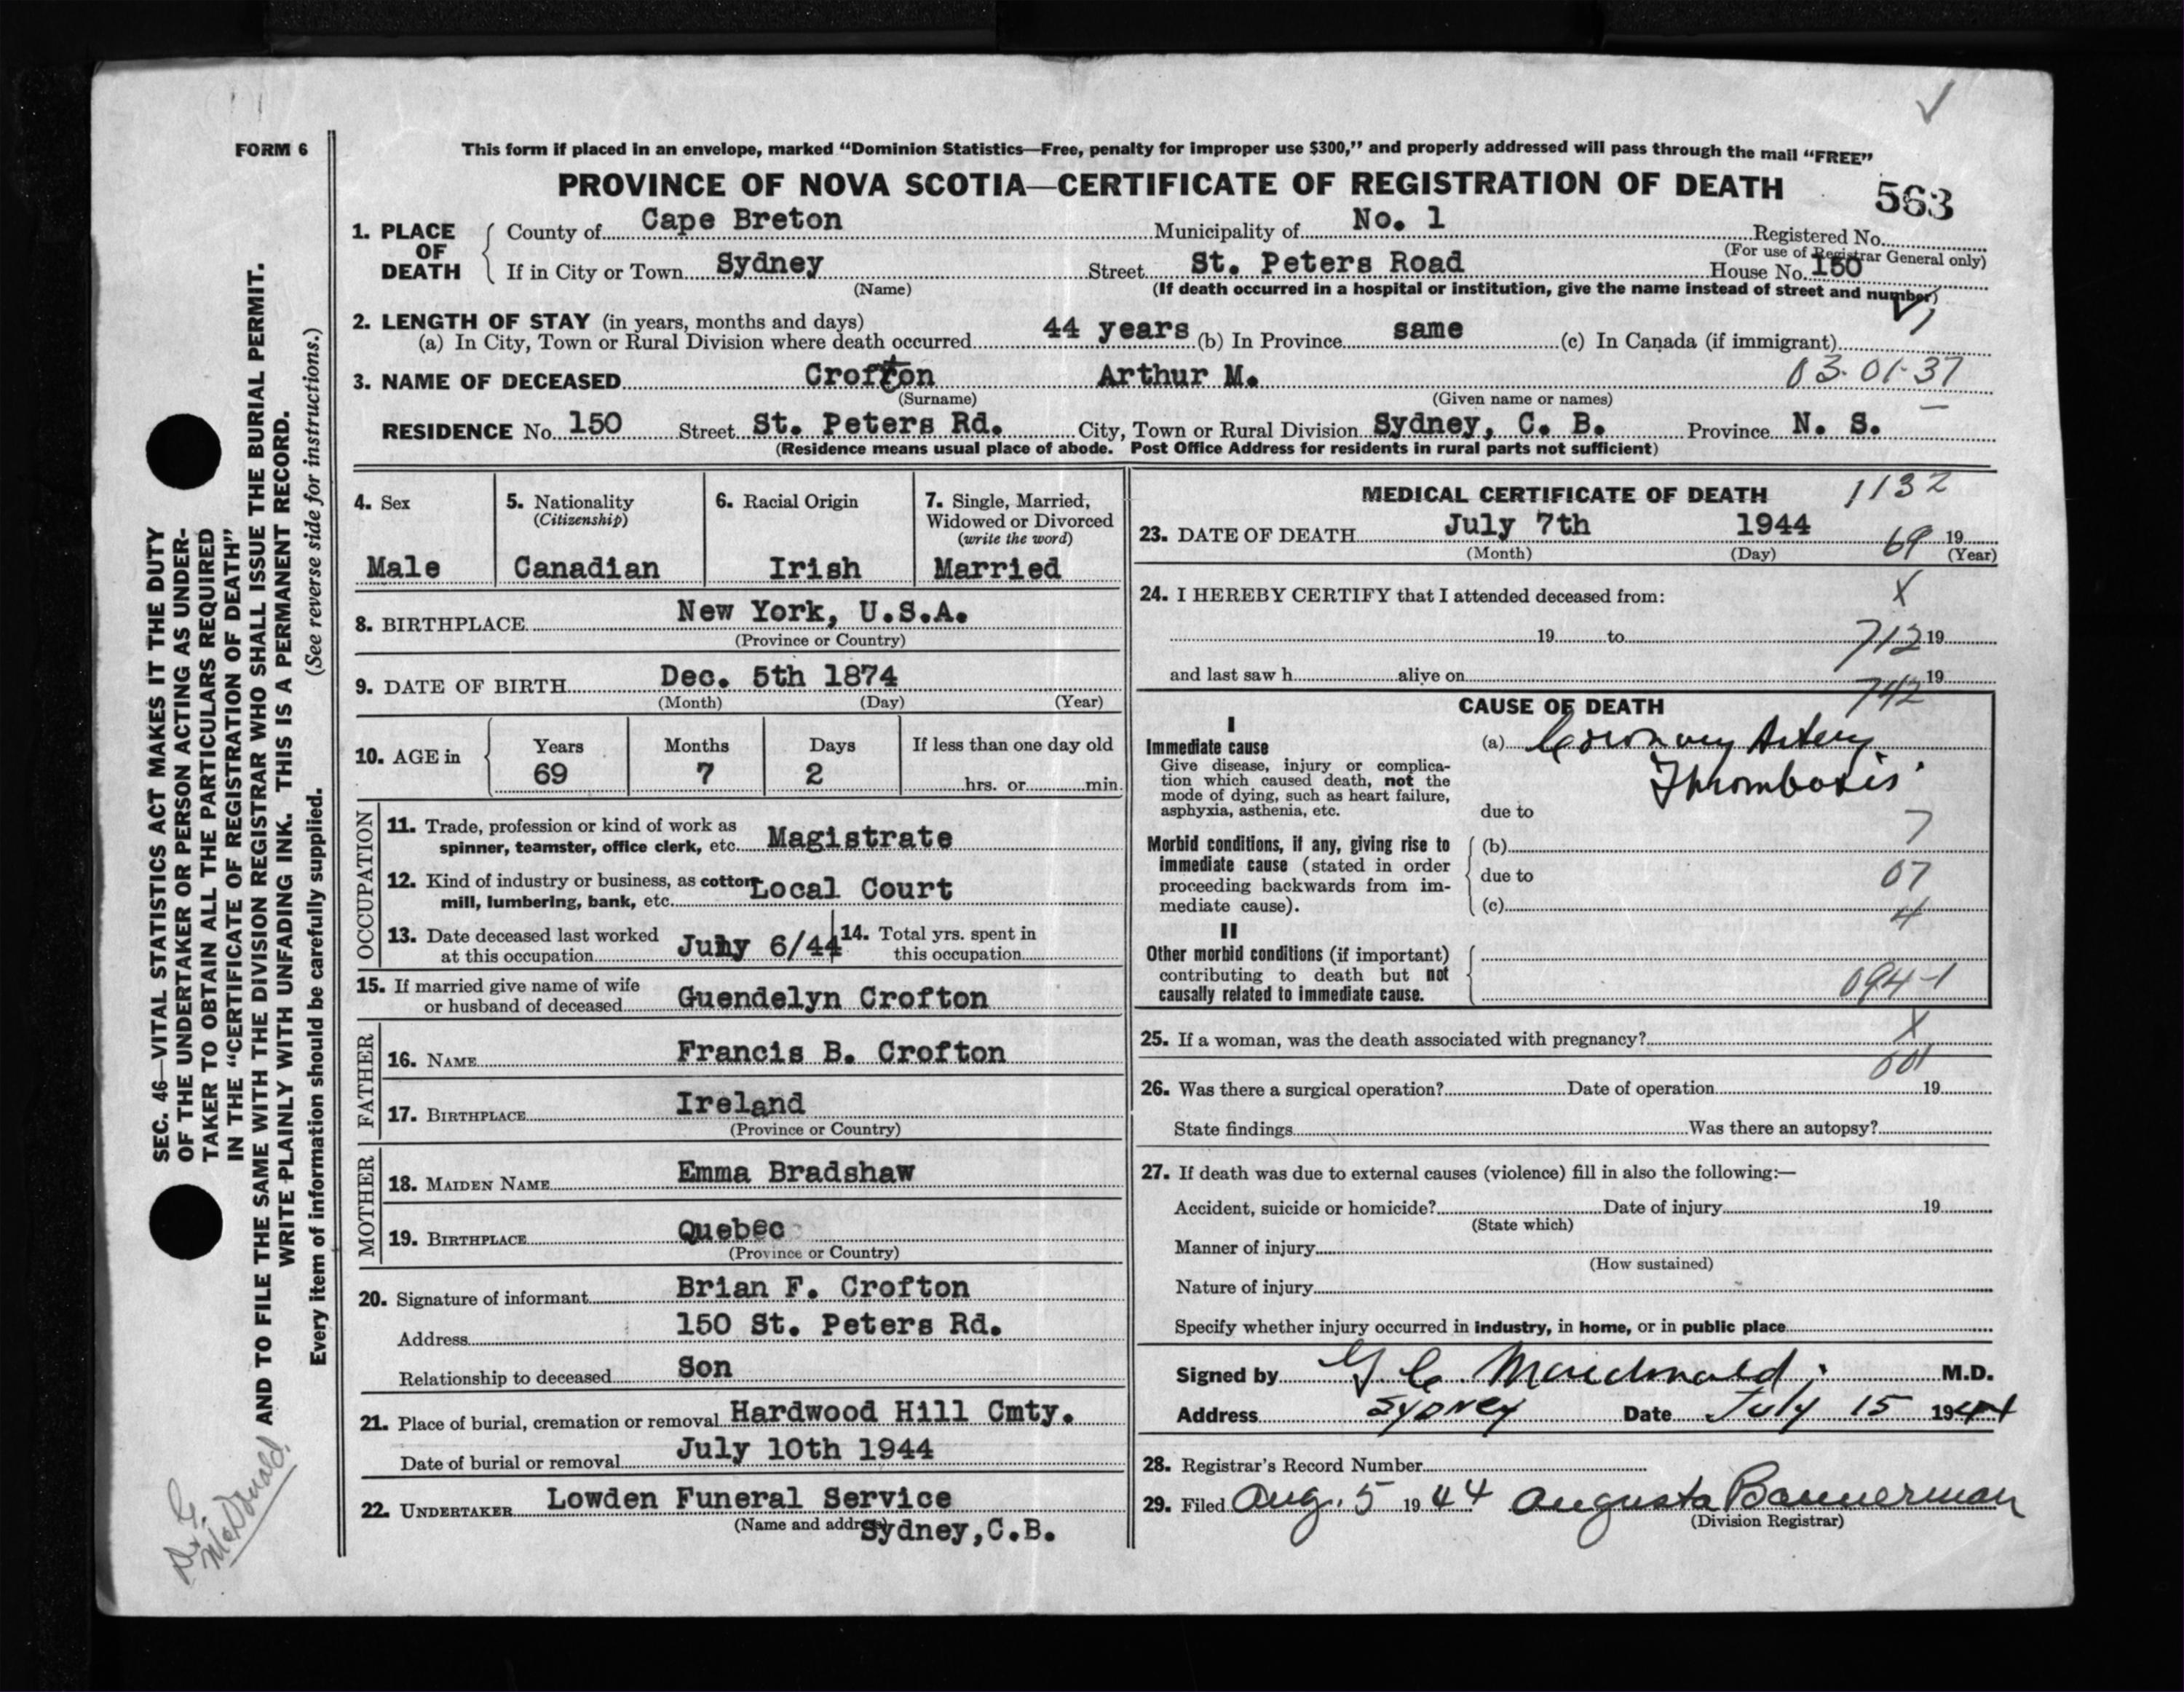 FORM 6
This form if placed in an envelope, marked “Dominion Statistics—Free, penalty for improper use $300,” and properly addressed will pass through the mail “FREE”
PROVINCE OF NOVA SCOTIA—CERTIFICATE OF REGISTRATION OF DEATH
563
1. PLACE OF DEATH
County of Cape Breton Municipality of No. 1 Registered No.
(For use of Registrar General only)
If in City or Town Sydney Street St. Peters Road House No. 150
(Name) (If death occurred in a hospital or institution, give the name instead of street and number)
2. LENGTH OF STAY (in years, months and days)
(a) In City, Town or Rural Division where death occurred 44 years (b) In Province same (c) In Canada (if immigrant)
3. NAME OF DECEASED Crofton Arthur M. 03-01-37
(Surname) (Given name or names)
RESIDENCE No. 150 Street St. Peters Rd. City, Town or Rural Division Sydney, C. B. Province N. S.
(Residence means usual place of abode. Post Office Address for residents in rural parts not sufficient)
4. Sex
Male
5. Nationality
(Citizenship)
Canadian
6. Racial Origin
Irish
7. Single, Married,
Widowed or Divorced
(write the word)
Married
8. BIRTHPLACE New York, U.S.A.
(Province or Country)
9. DATE OF BIRTH Dec. 5th 1874
(Month) (Day) (Year)
10. AGE in
Years Months Days If less than one day old
69 7 2 hrs. or min.
OCCUPATION
11. Trade, profession or kind of work as
spinner, teamster, office clerk, etc. Magistrate
12. Kind of industry or business, as cotton
mill, lumbering, bank, etc. Local Court
13. Date deceased last worked
at this occupation July 6/44
14. Total yrs. spent in
this occupation
15. If married give name of wife
or husband of deceased Guendelyn Crofton
FATHER
16. NAME Francis B. Crofton
17. BIRTHPLACE Ireland
(Province or Country)
MOTHER
18. MAIDEN NAME Emma Bradshaw
19. BIRTHPLACE Quebec
(Province or Country)
20. Signature of informant Brian F. Crofton
Address 150 St. Peters Rd.
Relationship to deceased Son
21. Place of burial, cremation or removal Hardwood Hill Cmty.
Date of burial or removal July 10th 1944
22. UNDERTAKER Lowden Funeral Service
(Name and address) Sydney, C.B.
MEDICAL CERTIFICATE OF DEATH 1132
23. DATE OF DEATH July 7th 1944 69 19
(Month) (Day) (Year)
24. I HEREBY CERTIFY that I attended deceased from: X
19 to 712 19
and last saw h alive on 742 19
CAUSE OF DEATH
I
Immediate cause
Give disease, injury or complica-
tion which caused death, not the
mode of dying, such as heart failure,
asphyxia, asthenia, etc.
(a) Coronary Artery
Thrombosis
due to
Morbid conditions, if any, giving rise to
immediate cause (stated in order
proceeding backwards from im-
mediate cause).
(b) 7
due to 07
(c) 4
II
Other morbid conditions (if important)
contributing to death but not
causally related to immediate cause.
094-1
25. If a woman, was the death associated with pregnancy? X
001
26. Was there a surgical operation? Date of operation 19
State findings Was there an autopsy?
27. If death was due to external causes (violence) fill in also the following:—
Accident, suicide or homicide? Date of injury 19
(State which)
Manner of injury
(How sustained)
Nature of injury
Specify whether injury occurred in industry, in home, or in public place
Signed by G C Macdonald M.D.
Address Sydney Date July 15 1944
28. Registrar's Record Number
29. Filed Aug. 5 1944 Augusta Bannerman
(Division Registrar)
SEC. 46—VITAL STATISTICS ACT MAKES IT THE DUTY
OF THE UNDERTAKER OR PERSON ACTING AS UNDER-
TAKER TO OBTAIN ALL THE PARTICULARS REQUIRED
IN THE “CERTIFICATE OF REGISTRATION OF DEATH”
AND TO FILE THE SAME WITH THE DIVISION REGISTRAR WHO SHALL ISSUE THE BURIAL PERMIT.
WRITE PLAINLY WITH UNFADING INK. THIS IS A PERMANENT RECORD.
Every item of information should be carefully supplied. (See reverse side for instructions.)
McDonald